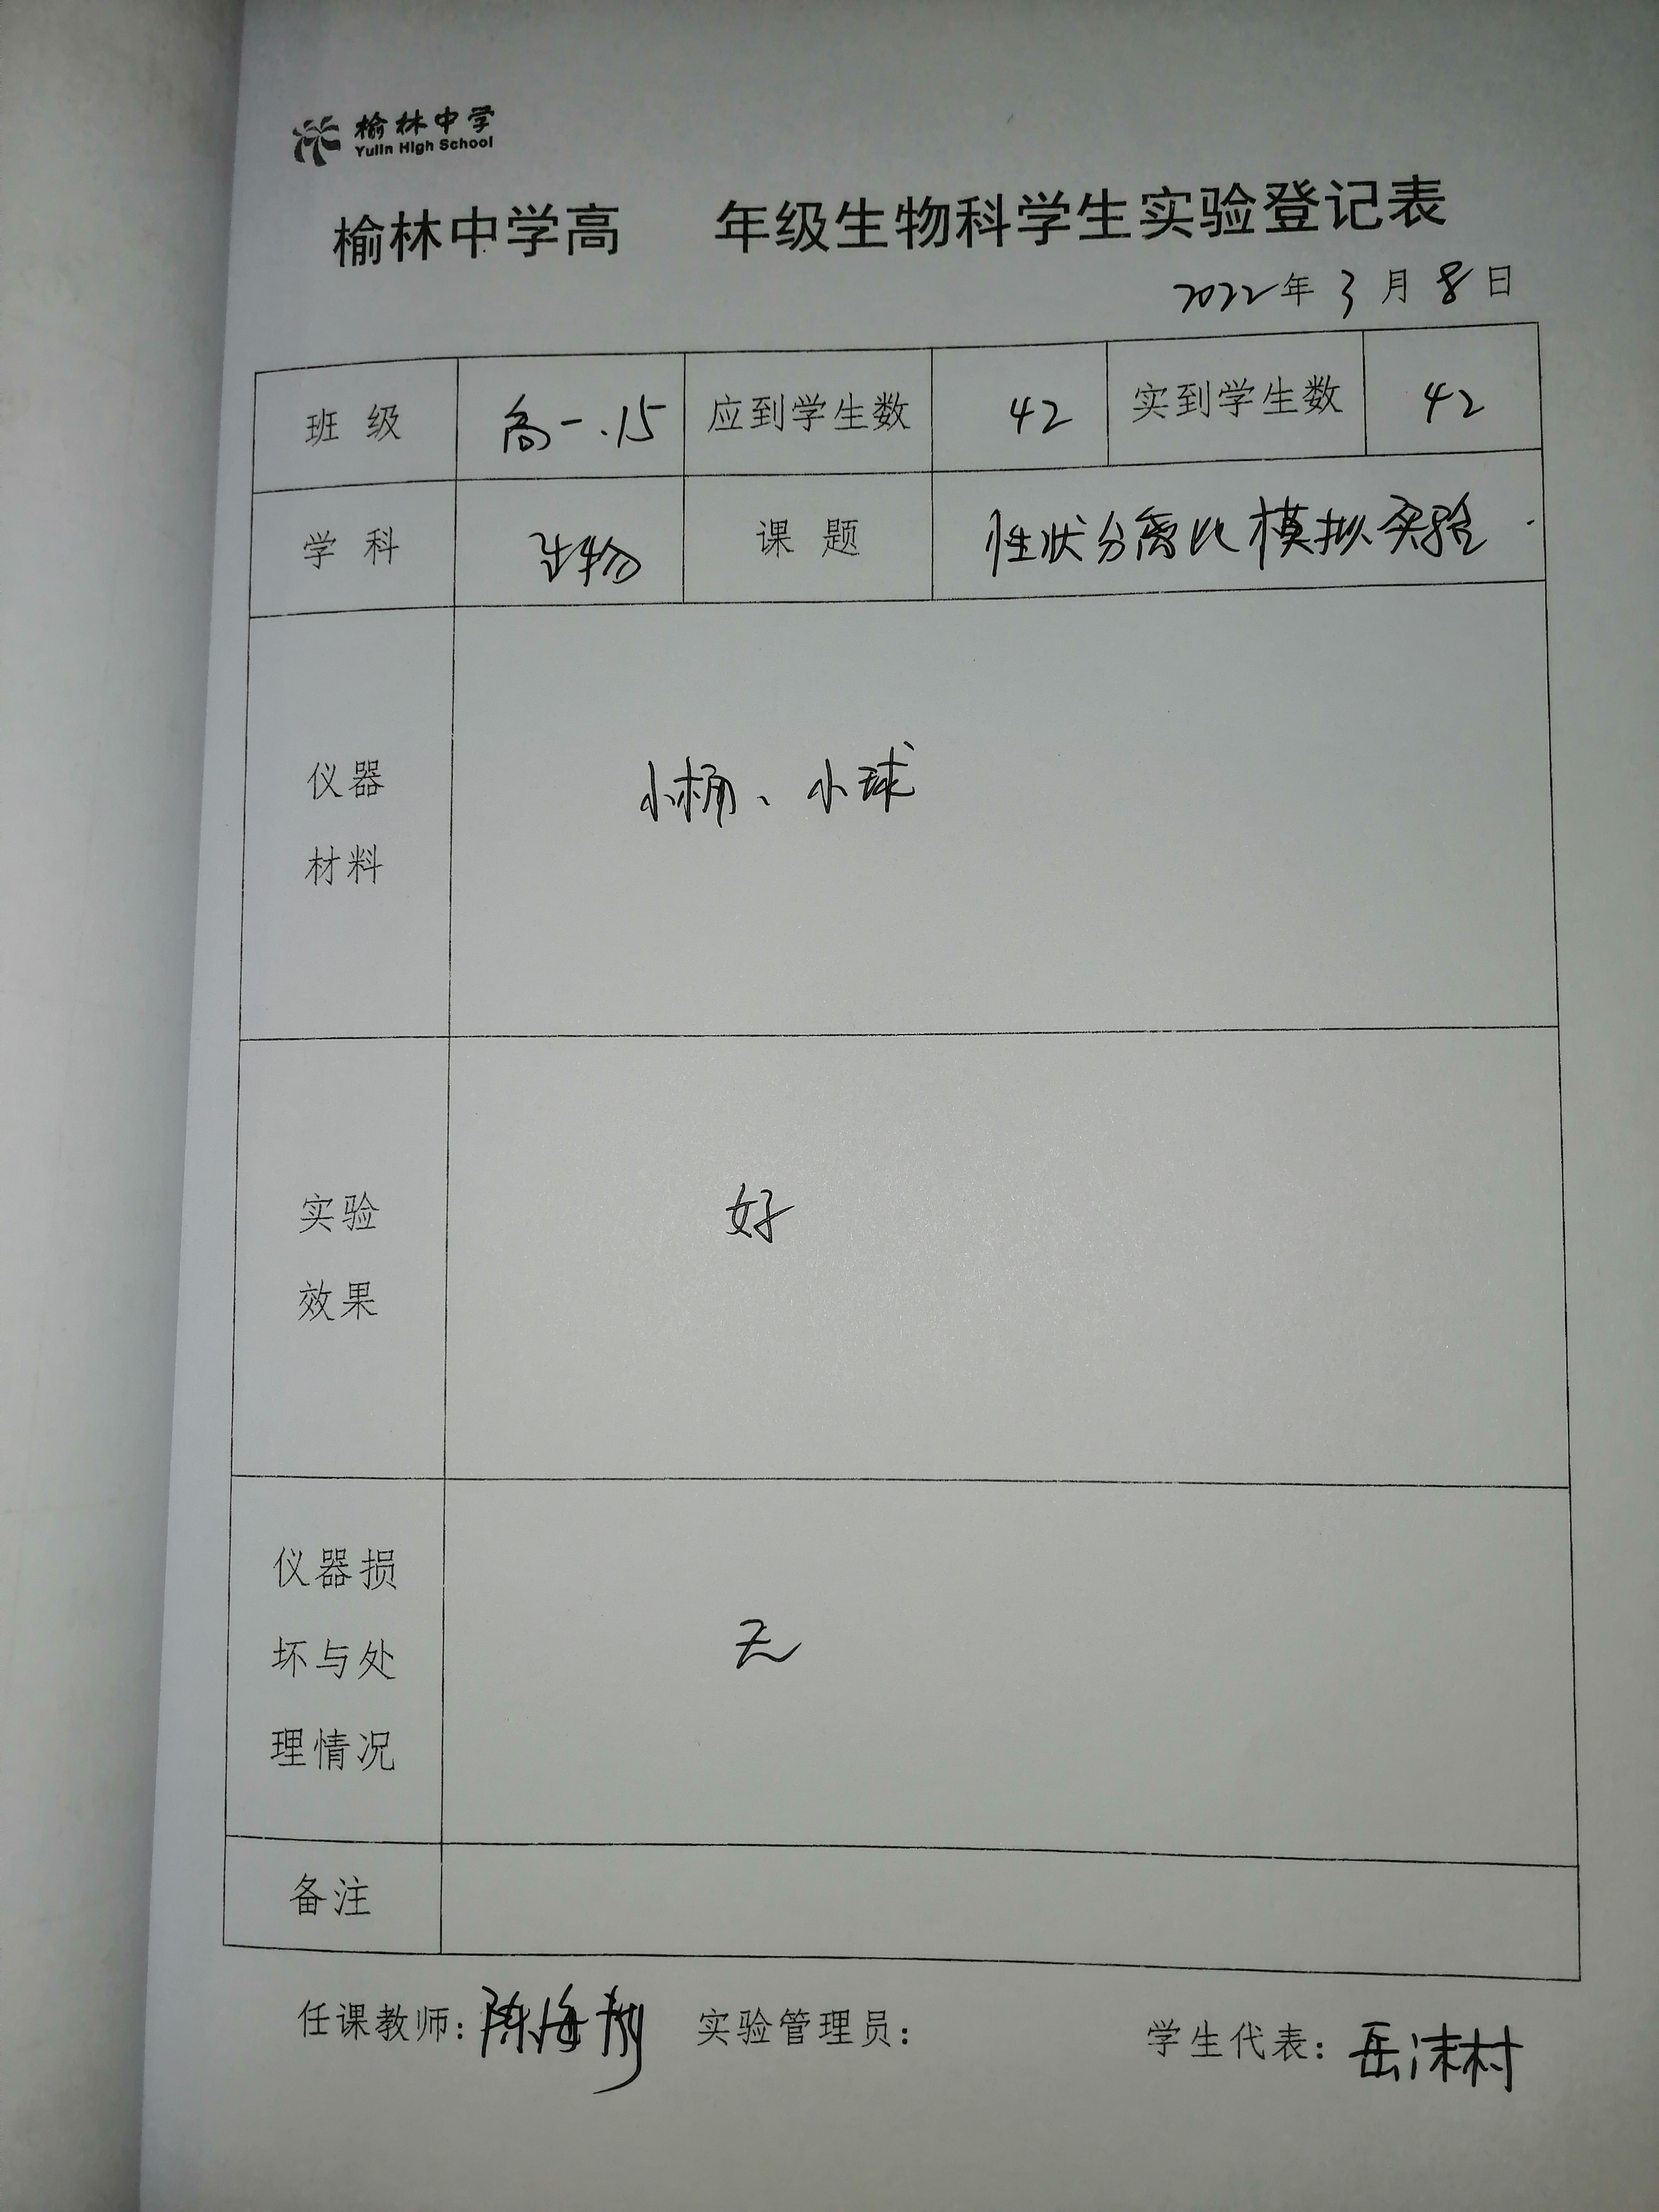 榆林中学
Yulin High School
榆林中学高 年级生物科学生实验登记表
2022年 3 月 8 日
班 级 高一.15 应到学生数 42 实到学生数 42
学 科 生物 课 题 性状分离比模拟实验
仪器
材料
小桶、小球
实验
效果
好
仪器损
坏与处
理情况
无
备注
任课教师: 陈海 实验管理员: 学生代表: 岳沫村